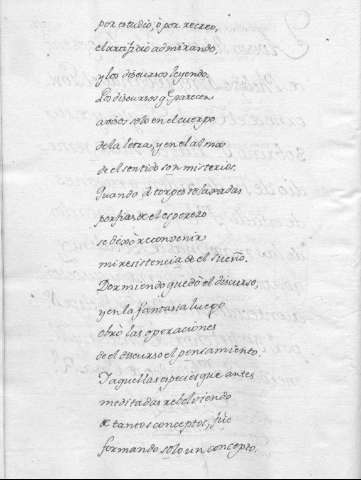 por estudio, o por recreo,
el artificio admirando,
y los discursos leyendo.
Los discursos q̃ parecen
solo en el cuerpo
de la letra, y en el alma
de el sentido son misterios.
Quando de torpes
porfias de el esperezo
se dexò reconvenir
mi resistencia de el sueño.
Dormiendo quedò el discurso,
y en la fantasia luego
obrò las operaciones
de el discurso el pensamiento.
Y aquellas especies que antes
meditadas rebolviendo
de tantos conceptos, fue
formando solo un concepto.